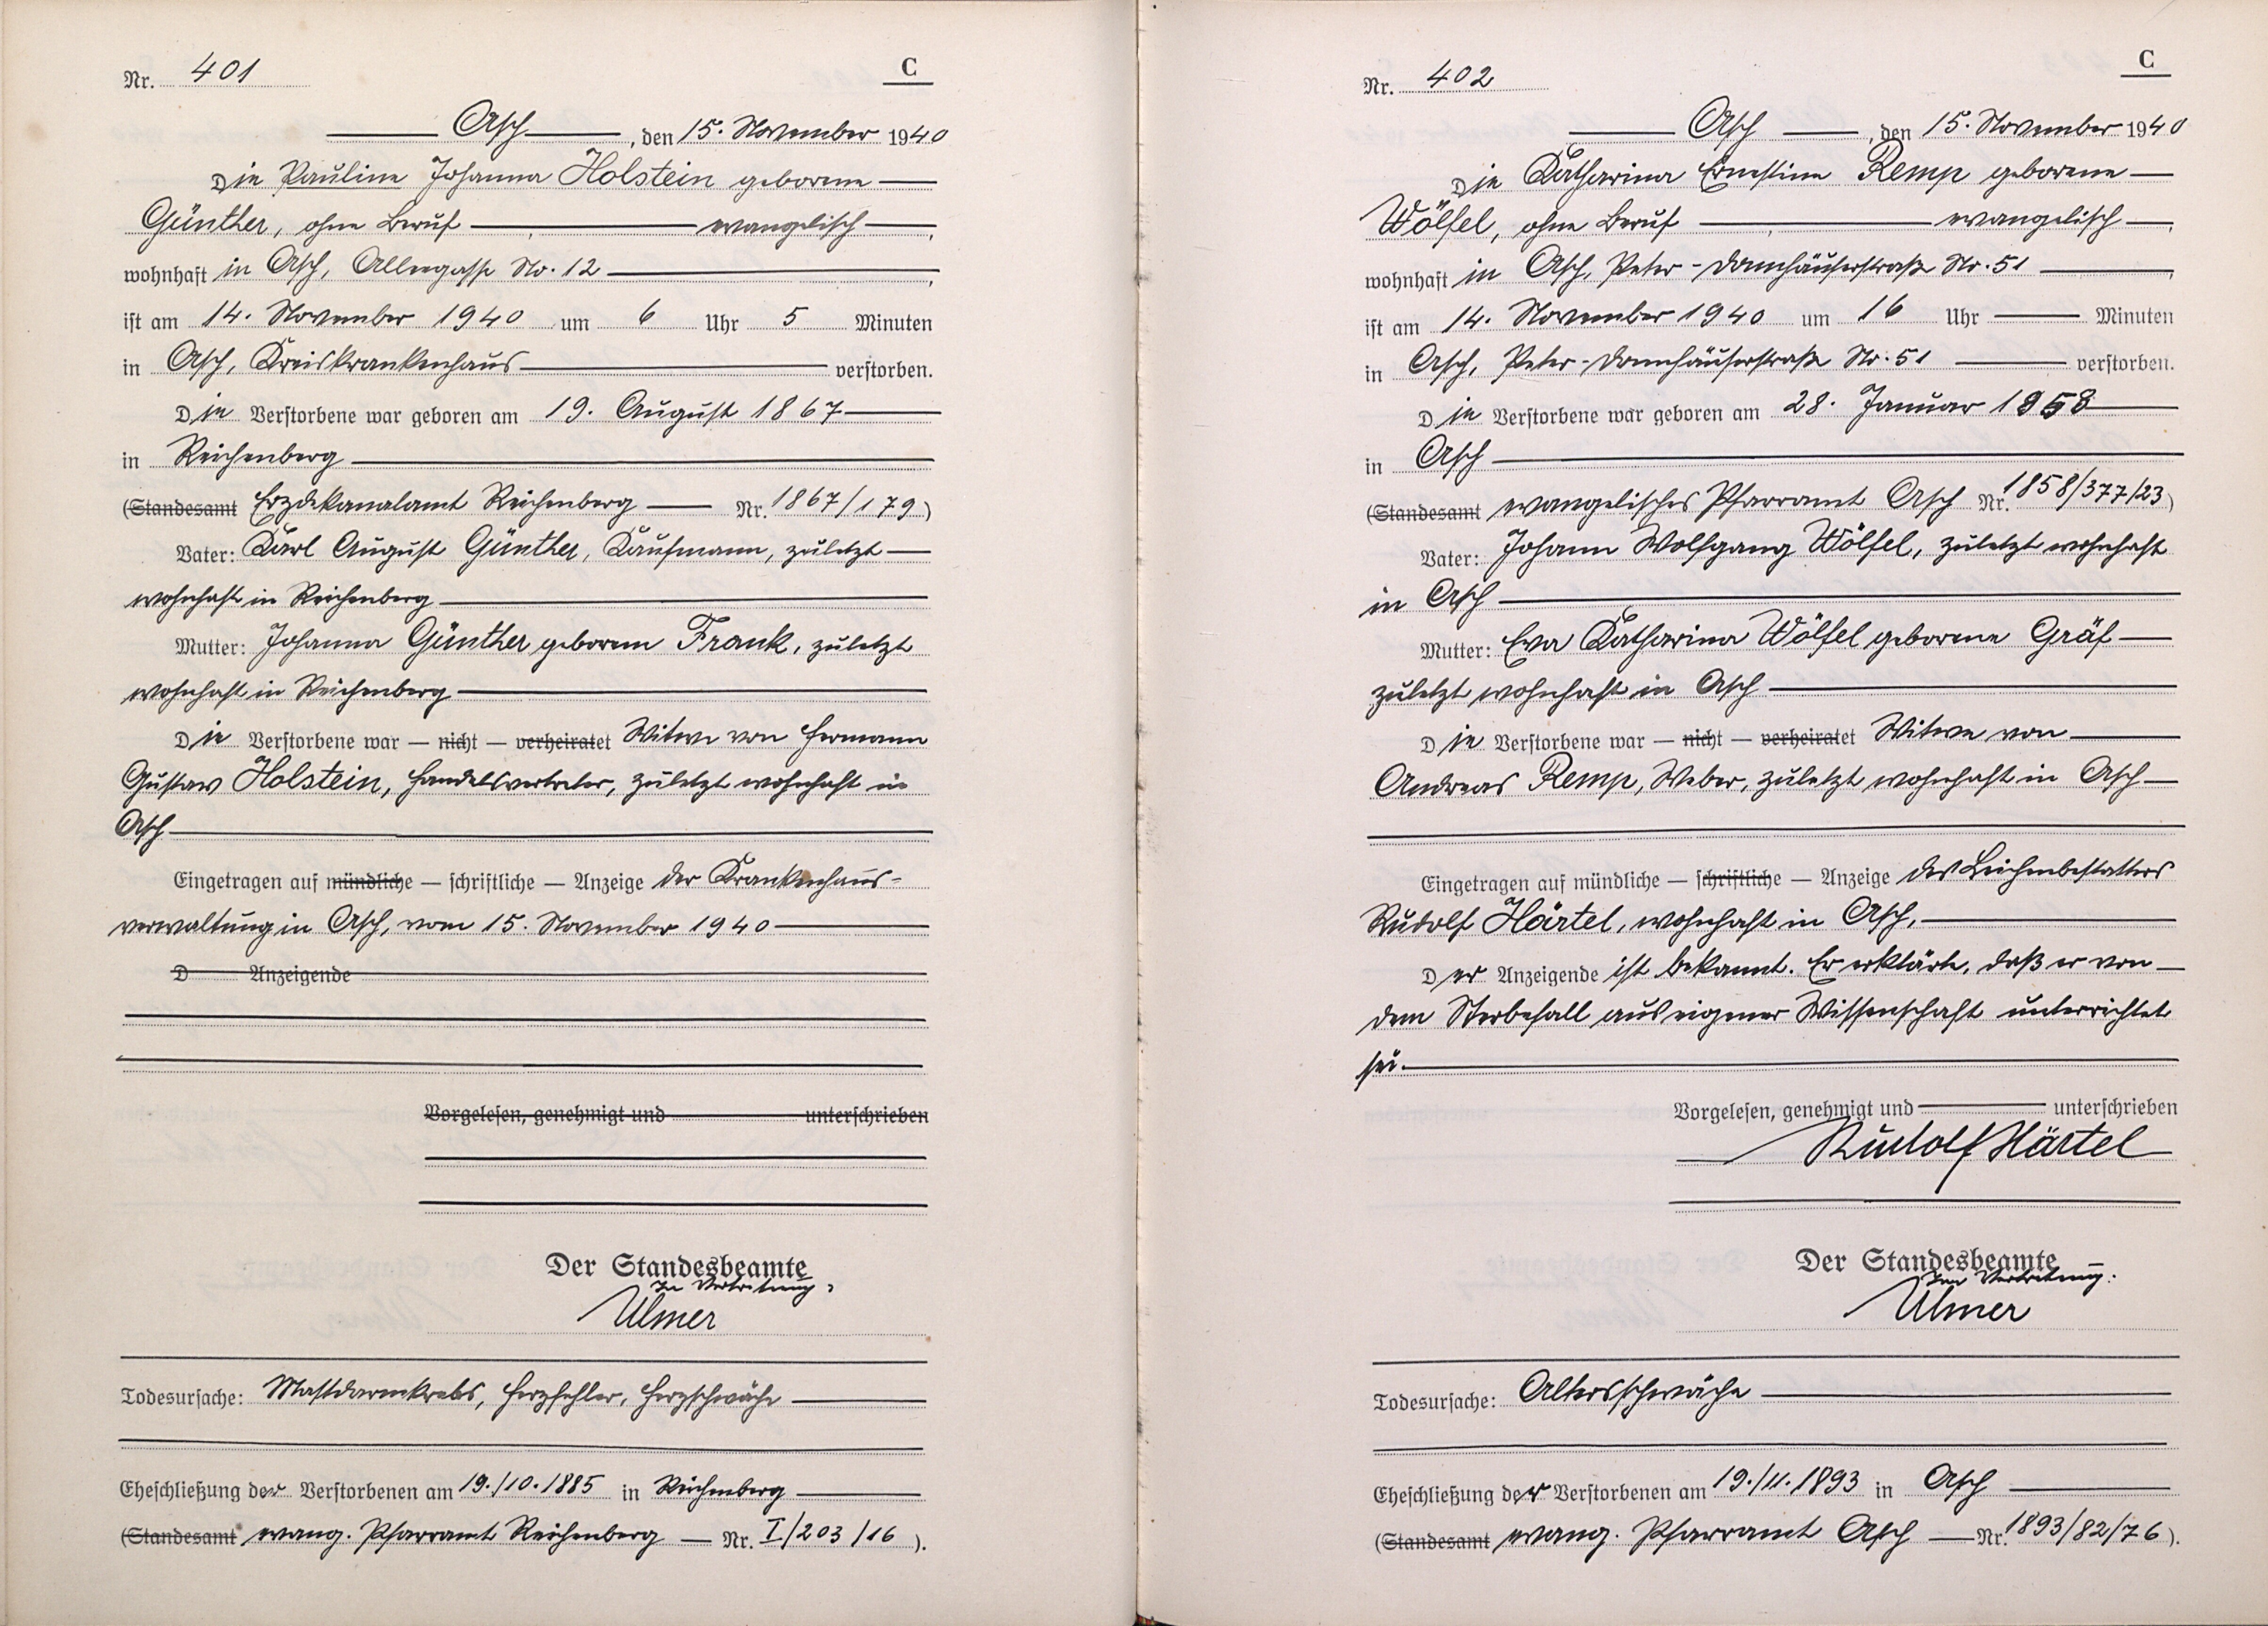 Nr. 401
C
Asch, den 15. November 1940
Die Pauline Johanna Holstein geborene
Günther, ohne Beruf, evangelisch,
wohnhaft in Asch, Alleegasse No. 12,
ist am 14. November 1940 um 6 Uhr 5 Minuten
in Asch, Kreiskrankenhaus verstorben.
Die Verstorbene war geboren am 19. August 1867
in Reichenberg
(Standesamt Erzdekanalamt Reichenberg Nr. 1867/179)
Vater: Karl August Günther, Kaufmann, zuletzt
wohnhaft in Reichenberg
Mutter: Johanna Günther geborene Frank, zuletzt
wohnhaft in Reichenberg
Die Verstorbene war — nicht — verheiratet Witwe von Hermann
Gustav Holstein, Handelsvertreter, zuletzt wohnhaft in
Asch
Eingetragen auf mündliche — schriftliche — Anzeige der Krankenhaus-
verwaltung in Asch, vom 15. November 1940
D Anzeigende
Vorgelesen, genehmigt und unterschrieben
Der Standesbeamte
In Vertretung:
Ulmer
Todesursache: Mastdarmkrebs, Herzfehler, Herzschwäche
Eheschließung der Verstorbenen am 19./10.1885 in Reichenberg
(Standesamt evang. Pfarramt Reichenberg — Nr. I/203/16).
Nr. 402
C
Asch, den 15. November 1940
Die Katharina Ernestine Remp geborene
Wölfel, ohne Beruf, evangelisch,
wohnhaft in Asch, Peter-Donnhäuserstraße No. 51,
ist am 14. November 1940 um 16 Uhr Minuten
in Asch, Peter-Donnhäuserstraße No. 51 verstorben.
Die Verstorbene war geboren am 28. Januar 1858
in Asch
(Standesamt evangelisches Pfarramt Asch Nr. 1858/377/23)
Vater: Johann Wolfgang Wölfel, zuletzt wohnhaft
in Asch
Mutter: Eva Katharina Wölfel geborene Gräf
zuletzt wohnhaft in Asch
Die Verstorbene war — nicht — verheiratet Witwe von
Andreas Remp, Weber, zuletzt wohnhaft in Asch
Eingetragen auf mündliche — schriftliche — Anzeige des Leichenbestatters
Rudolf Härtel, wohnhaft in Asch,
Der Anzeigende ist bekannt. Er erklärte, daß er von
dem Sterbefall aus eigener Wissenschaft unterrichtet
sei.
Vorgelesen, genehmigt und unterschrieben
Rudolf Härtel
Der Standesbeamte
In Vertretung:
Ulmer
Todesursache: Altersschwäche
Eheschließung der Verstorbenen am 19./11.1893 in Asch
(Standesamt evang. Pfarramt Asch — Nr. 1893/82/76).